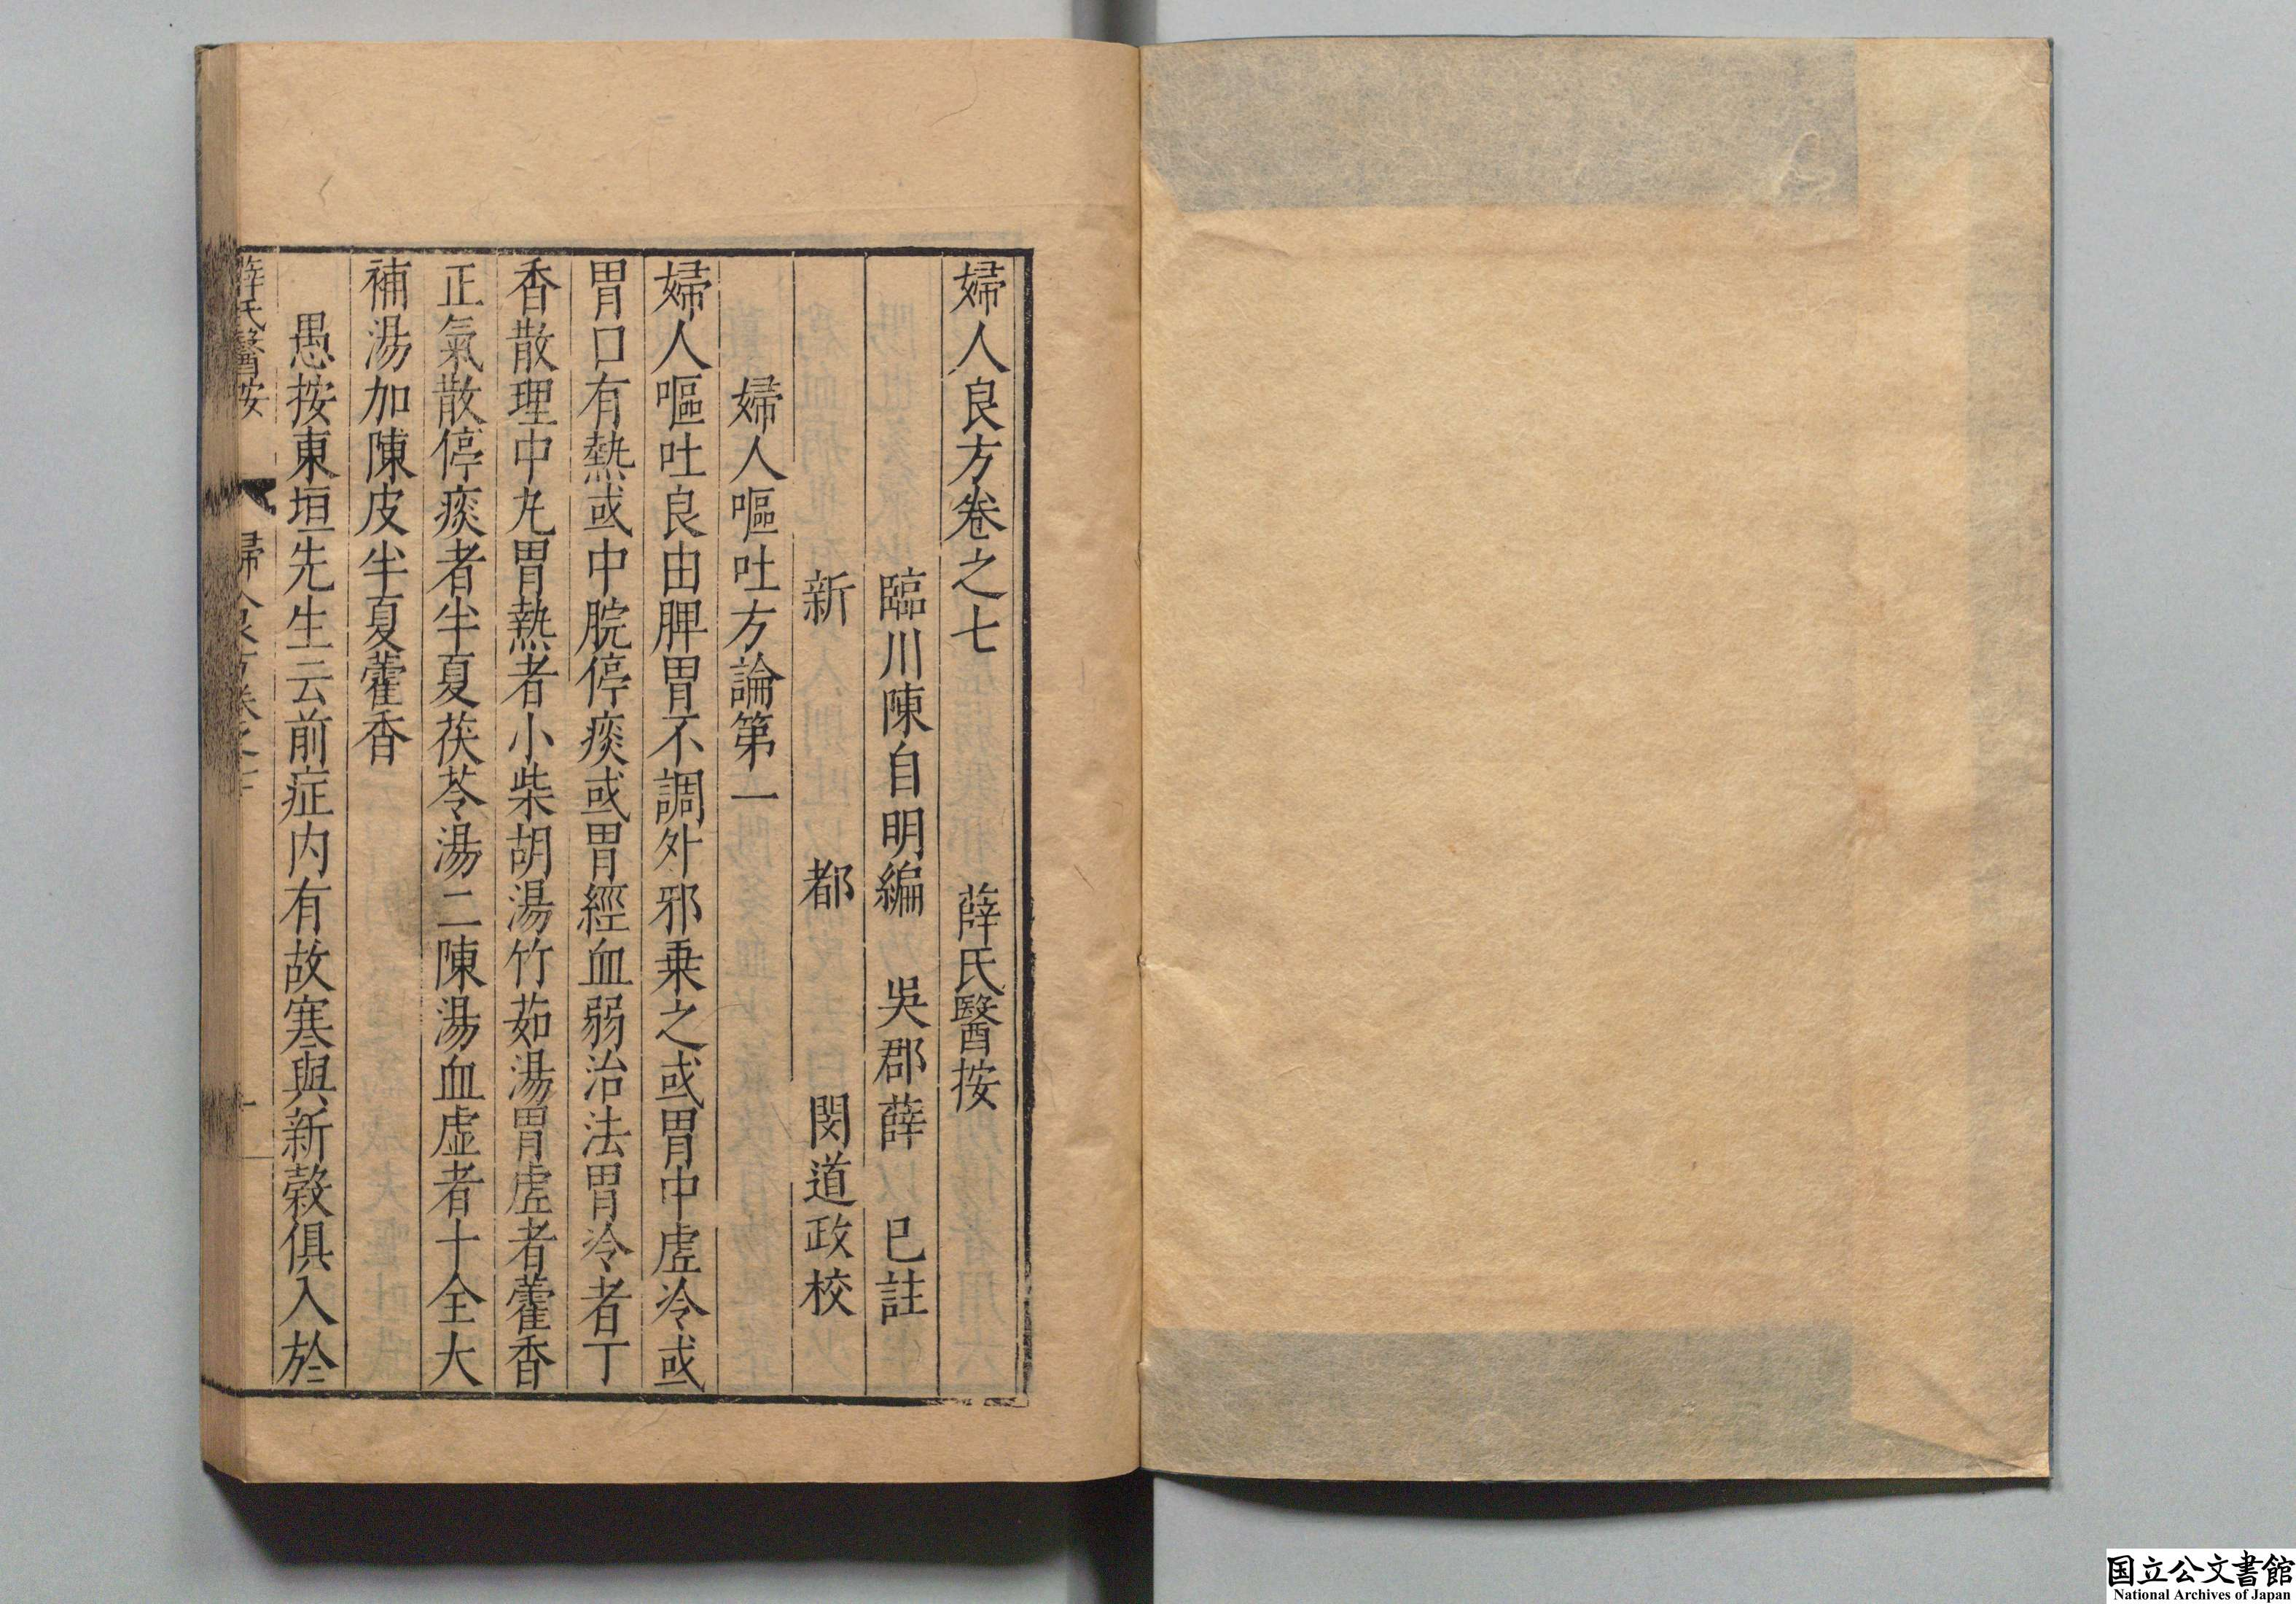 婦人良方卷之七 薛氏醫按
臨川陳自明編 吳郡薛 已註
新 都 閔道政校
婦人嘔吐方論第一
婦人嘔吐良由脾胃不調外邪乗之或胃中虛冷或
胃口有熱或中脘停痰或胃經血弱治法胃冷者丁
香散理中丸胃熱者小柴胡湯竹茹湯胃虛者藿香
正氣散停痰者半夏茯苓湯二陳湯血虛者十全大
補湯加陳皮半夏藿香
愚按東垣先生云前症内有故寒與新穀俱入於
薛氏醫按 婦人良方卷之七 一
国立公文書館
National Archives of Japan